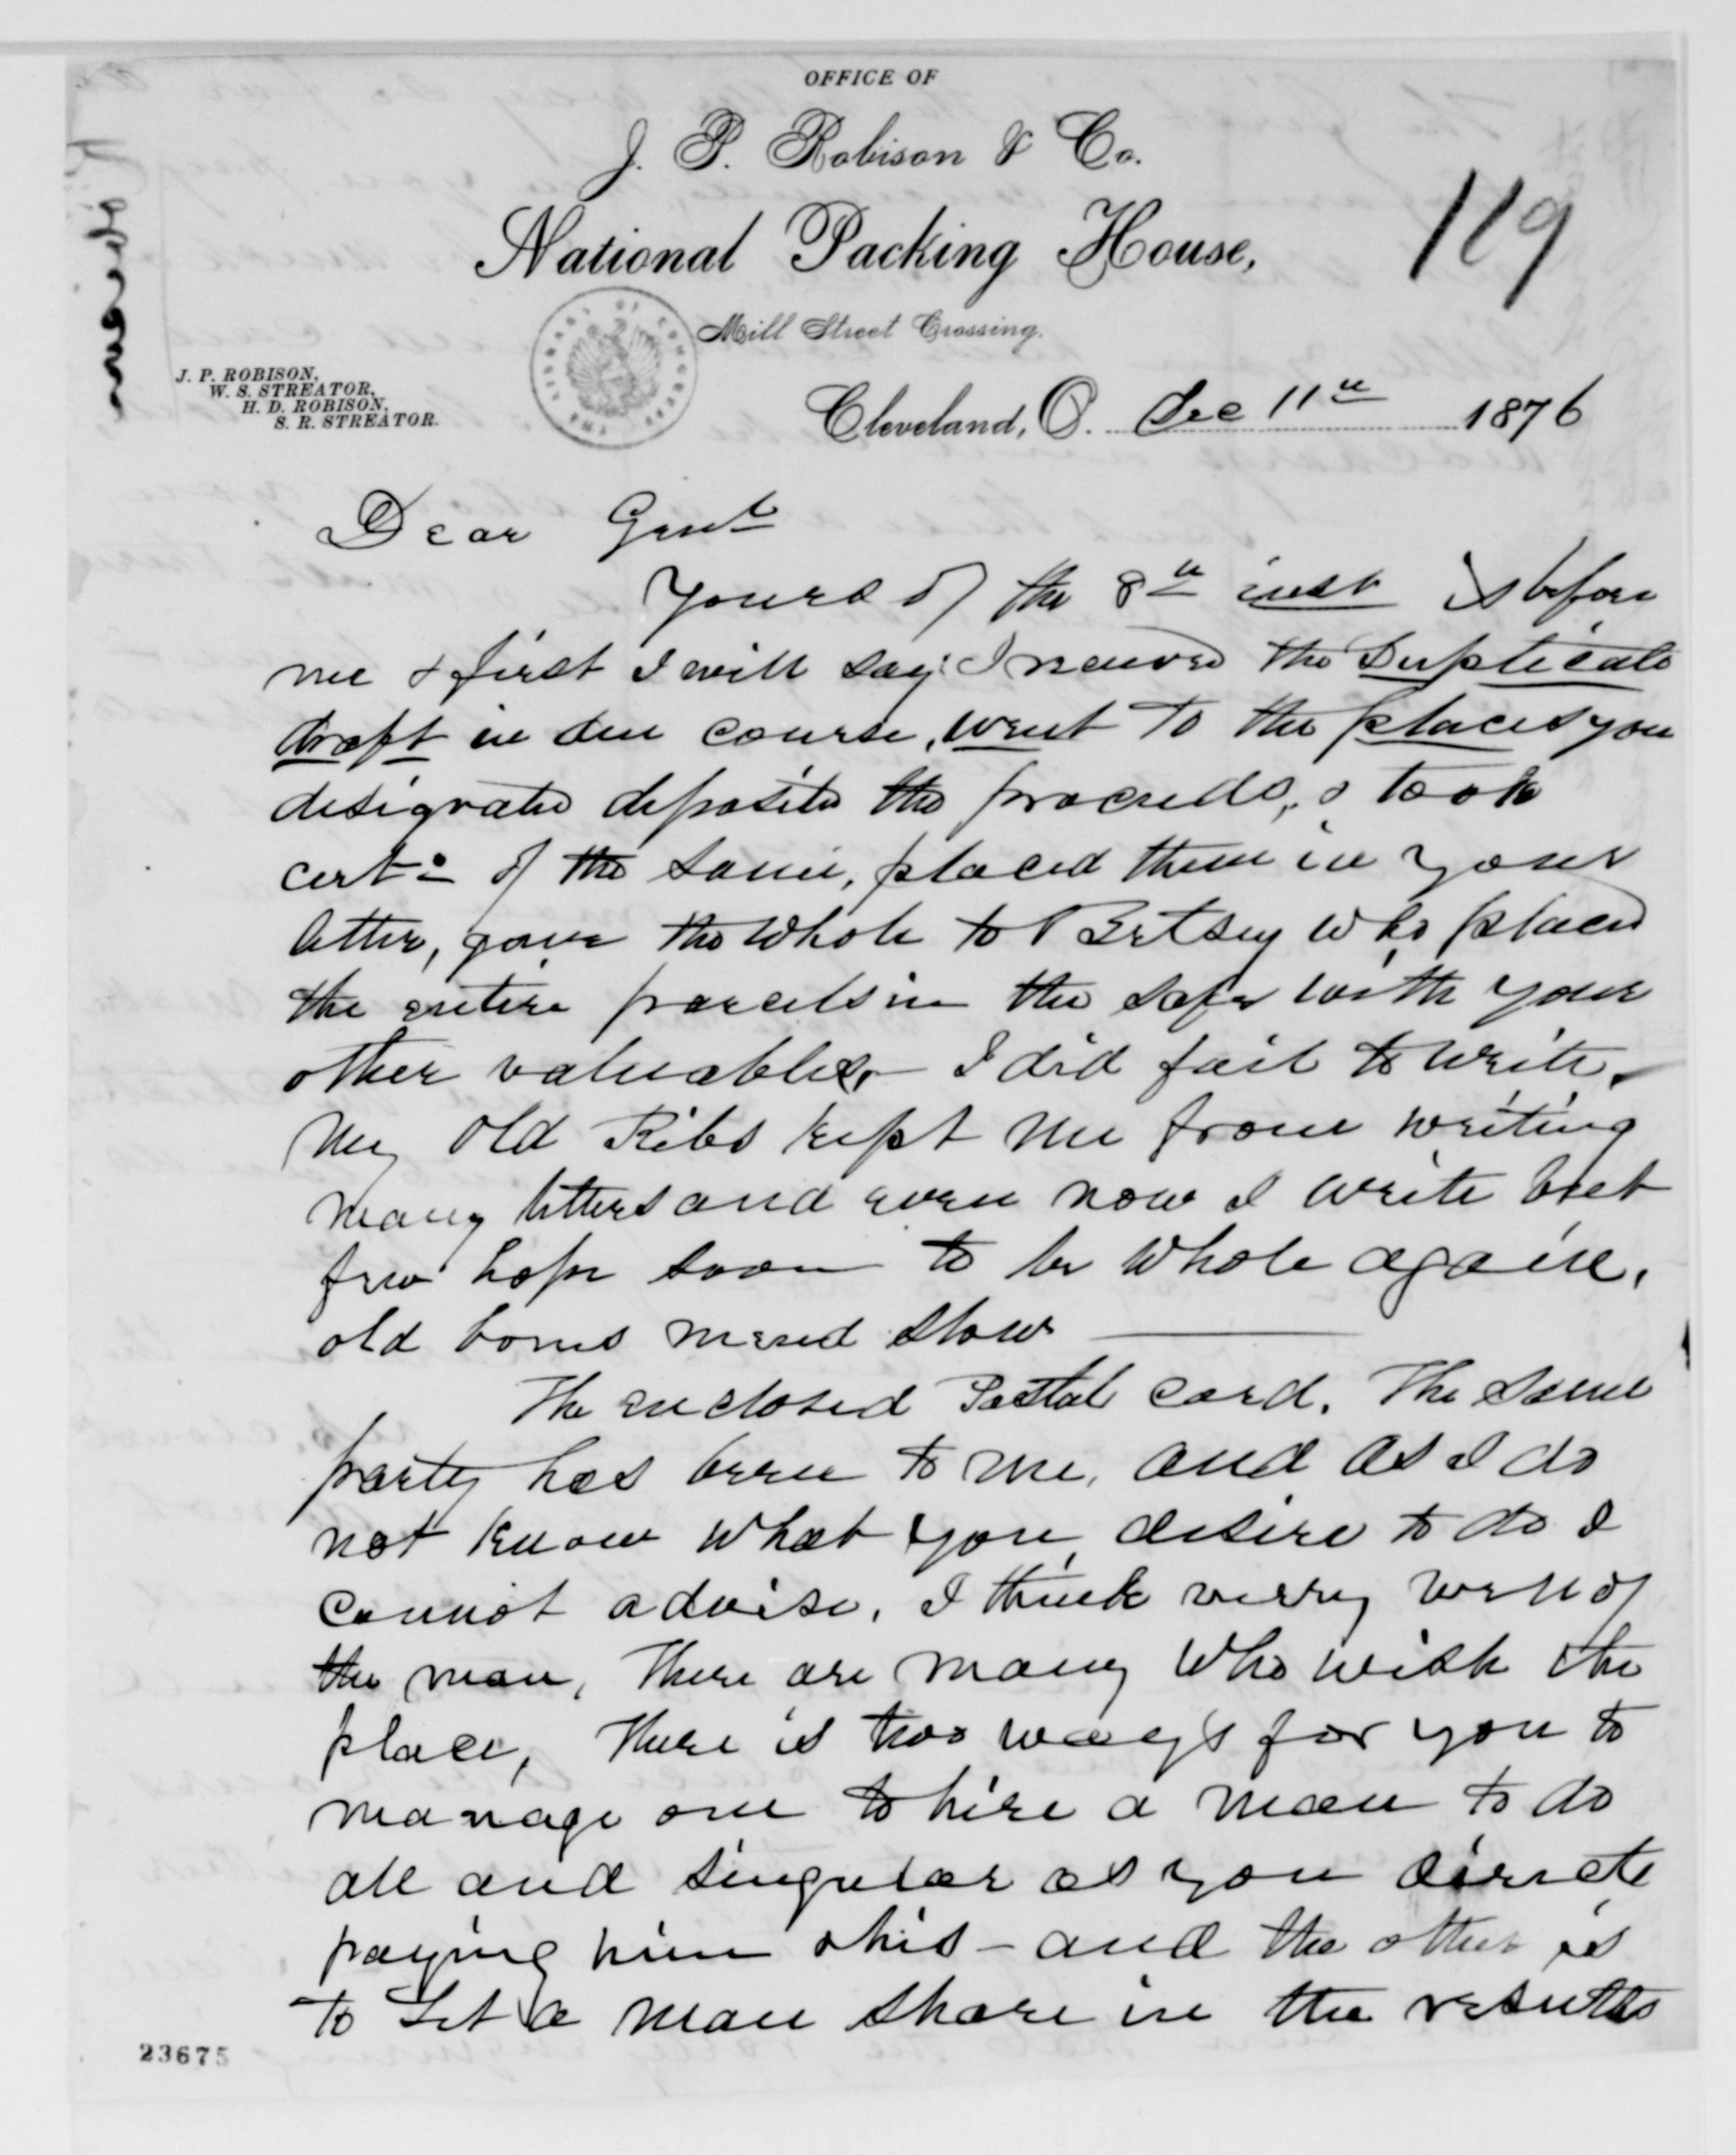 OFFICE OF
J. P. Robison & Co.
National Packing House,
119
Mill Street Crossing.
J. P. ROBISON,
W. S. STREATOR,
H. D. ROBISON,
S. R. STREATOR.
LIBRARY OF CONGRESS
Cleveland, O. Dec 11th 1876
Dear Genl
Yours of the 8th inst is before
me & first I will say I received the Duplicate
draft in due course, went to the places you
designated deposited the proceeds, & took
certs of the same, placed them in your
letter, gave the whole to Betsey who placed
the entire parcels in the safe with your
other valuables. I did fail to write.
My old Ribs kept me from writing
many letters and even now I write but
few hope soon to be whole again,
old bones mend slow
The enclosed Postal card. The same
party has been to me, and as I do
not know what you desire to do I
cannot advise. I think verry well of
the man, There are many who wish the
place, There is two ways for you to
manage one to hire a man to do
all and singular as you direct
paying him this - and the other is
to Let a man share in the results
23675